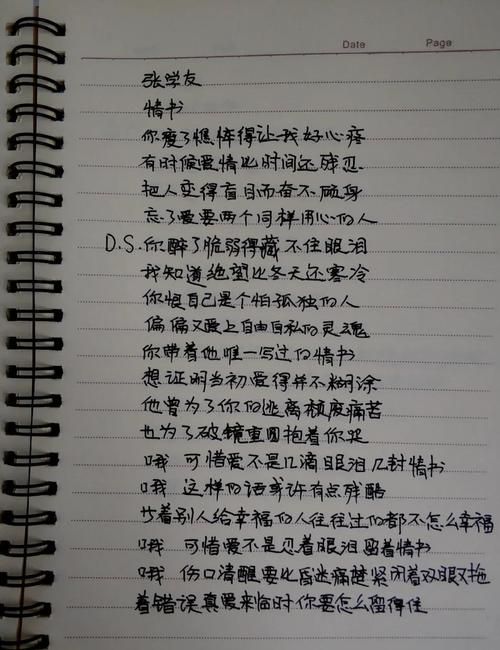 Date Page
张学友
情书
你瘦了憔悴得让我好心疼
有时候爱情比时间还残忍
把人变得盲目而奋不顾身
忘了爱要两个同样用心的人
D.S.你醉了脆弱得藏不住眼泪
我知道绝望比冬天还寒冷
你恨自己是个怕孤独的人
偏偏又爱上自由自私的灵魂
你带着他唯一写过的情书
想证明当初爱得并不糊涂
他曾为了你的逃离颓废痛苦
也为了破镜重圆抱着你哭
哦 可惜爱不是几滴眼泪几封情书
哦 这样的话或许有点残酷
等着别人给幸福的人往往过的都不怎么幸福
哦 可惜爱不是忍着眼泪留着情书
哦 伤口清醒要比昏迷痛楚紧闭着双眼又拖
着错误真爱来临时你要怎么留得住